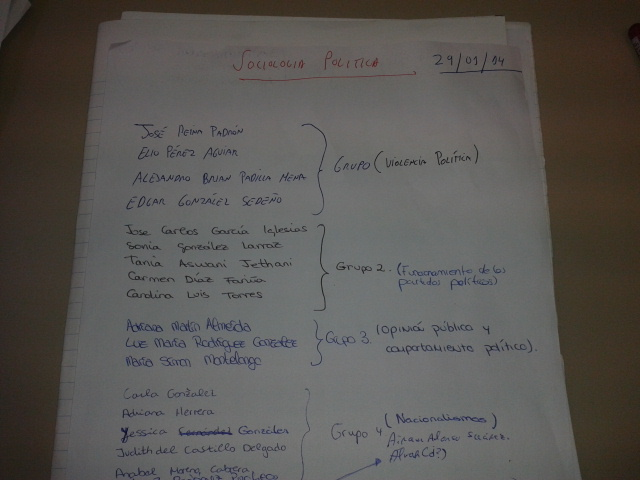 SOCIOLOGIA POLITICA
29/01/14
JOSÉ REINA PADRÓN
ELIU PÉREZ AGUIAR
ALEJANDRO BRIAN PADILLA MENA
EDGAR GONZÁLEZ SEDEÑO
GRUPO (VIOLENCIA POLÍTICA)
Jose Carlos García Iglesias
Sonia González Larraz
Tania Aswani Jethani
Carmen Díaz Fariña
Carolina Luis Torres
Grupo 2. (Funcionamiento de los
partidos políticos)
Adriana Marín Almeida
Luz María Rodríguez González
María Simón
Grupo 3. (Opinión pública y
comportamiento político).
Carla González
Adriana Herrera
Yessica González
Judith del Castillo Delgado
Anabel Moreno Cabrera
Pacheco
Grupo 4 (Nacionalismos)